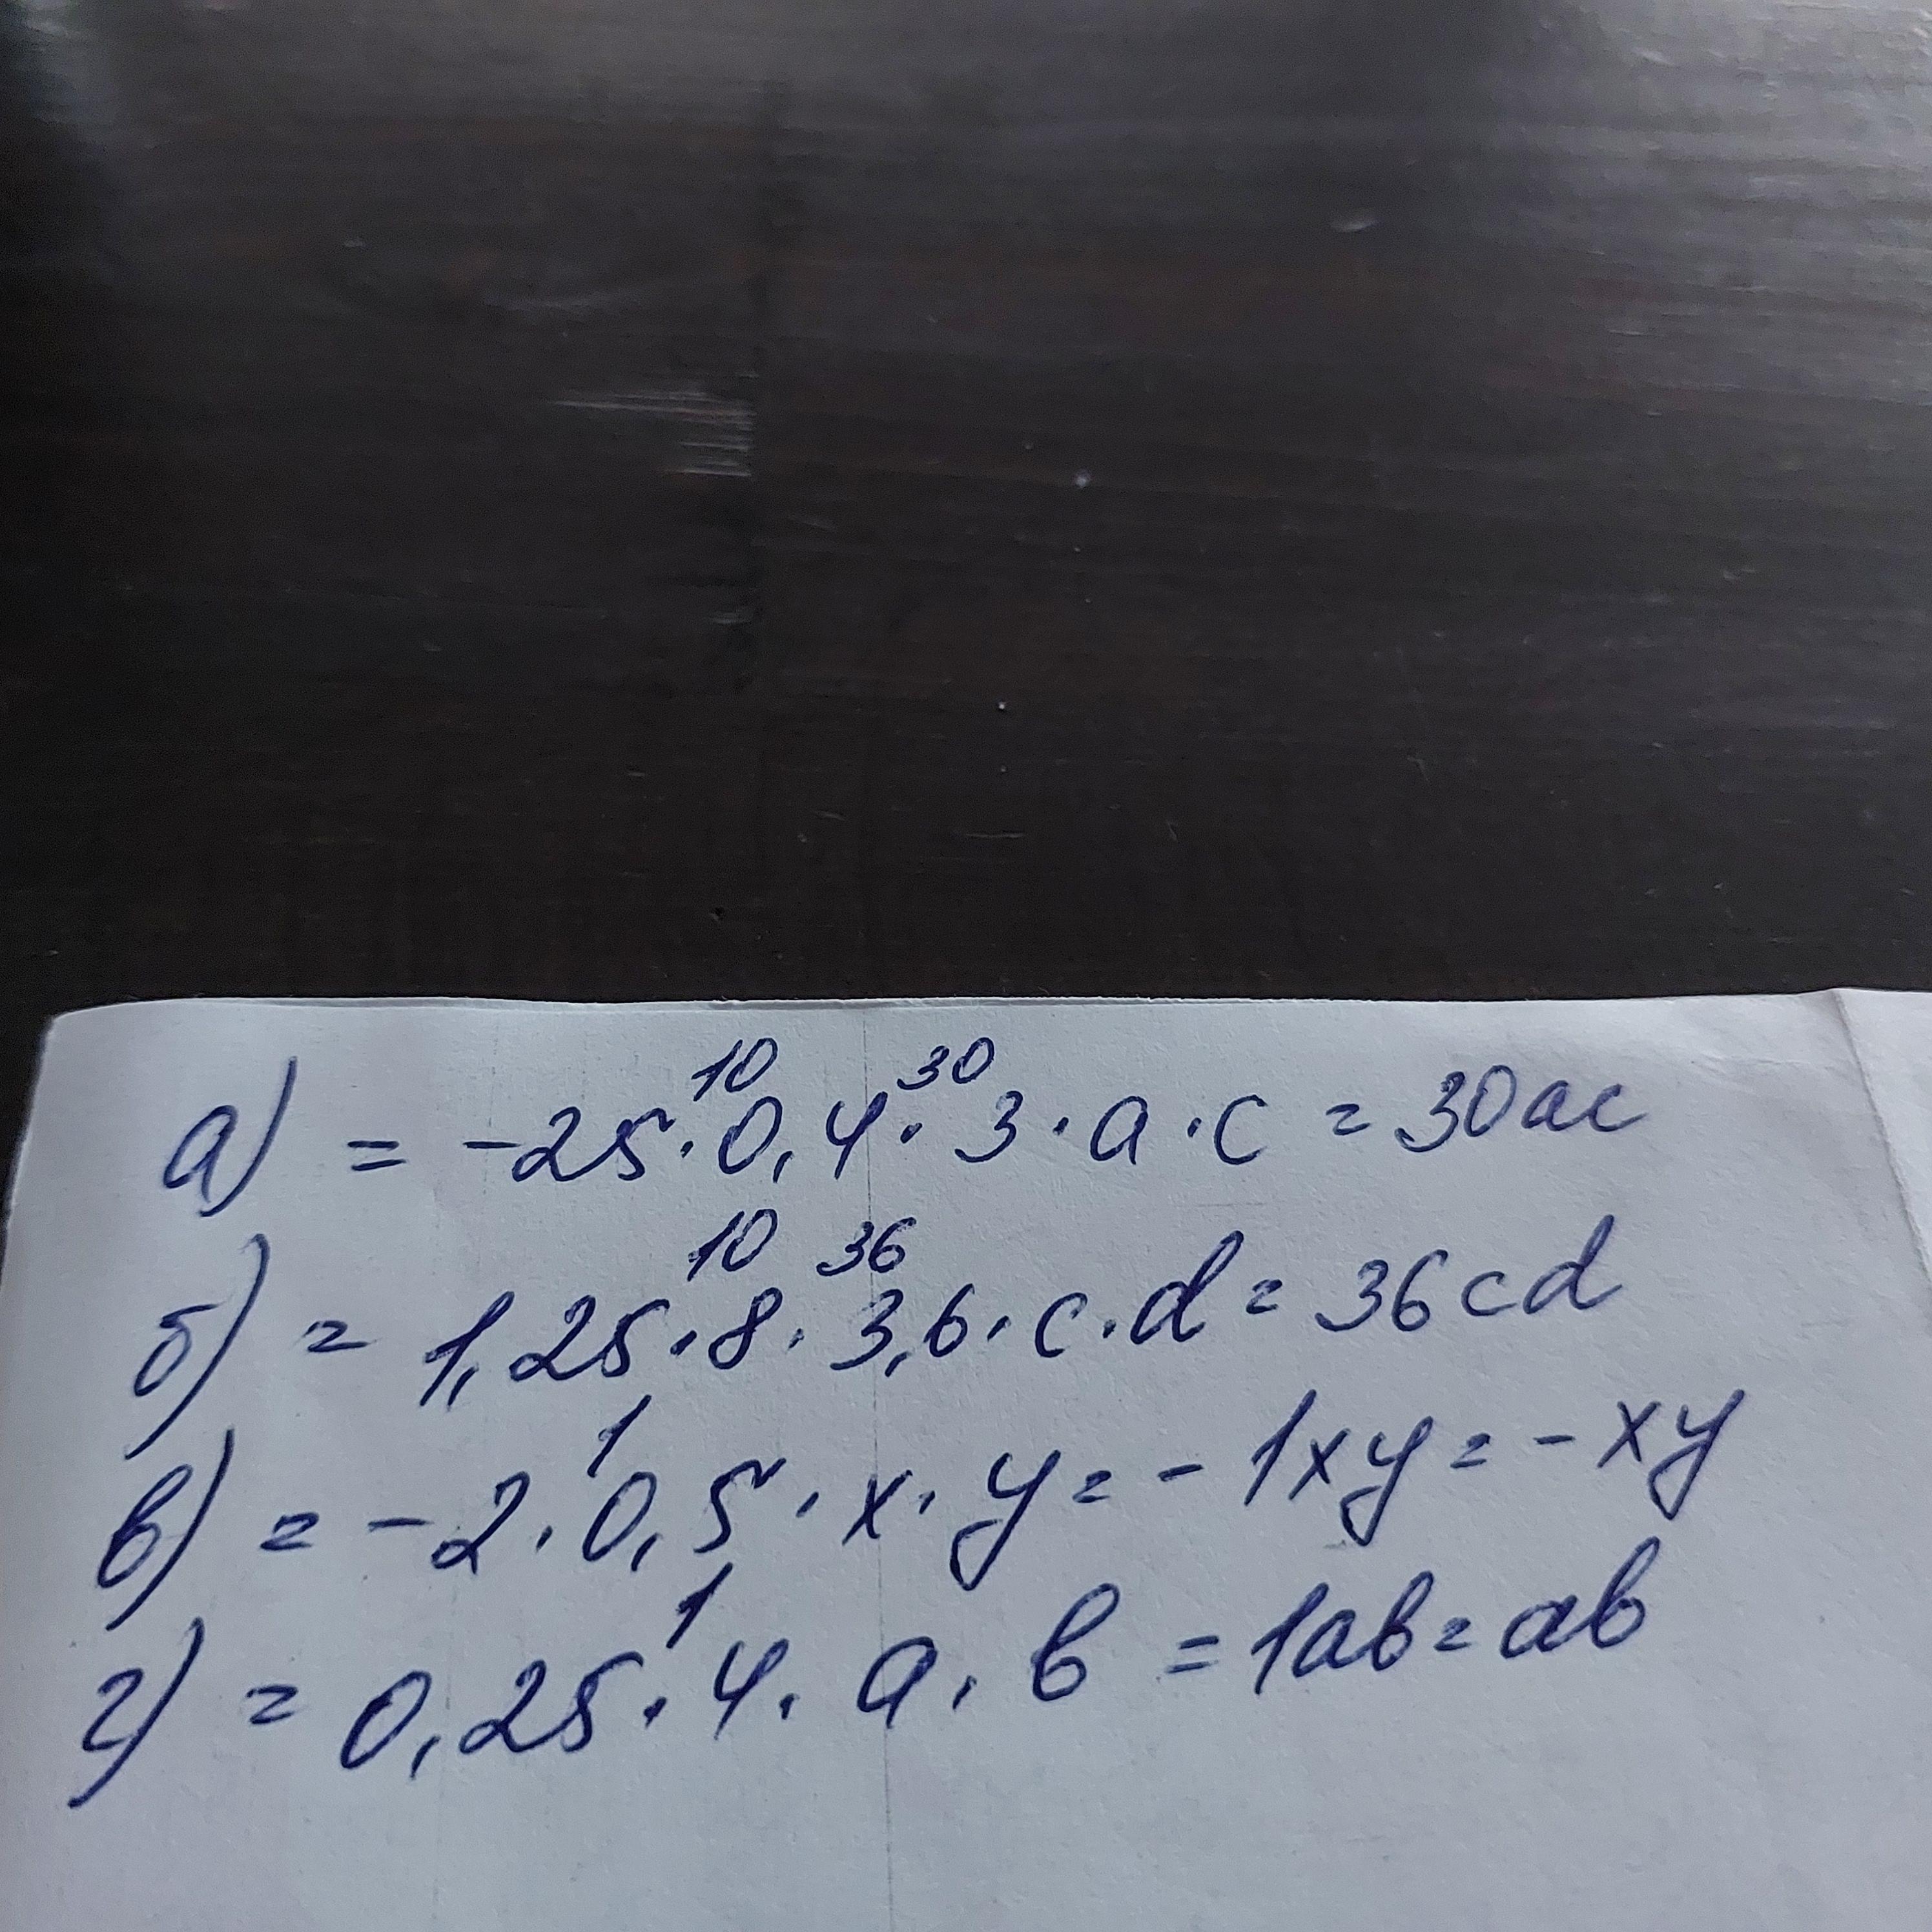 10 30
а) = -25·0,4·3·a·c = 30ac
10 36
б) = 1,25·8·3,6·c·d = 36cd
1
в) = -2·0,5·x·y = -1xy = -xy
1
г) = 0,25·4·a·b = 1ab = ab